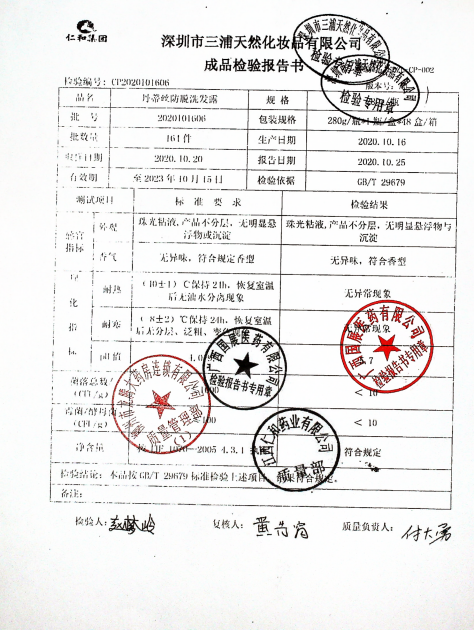 仁和集团
深圳市三浦天然化妆品有限公司
成品检验报告书
CP-002
检验编号：CP2020101606 版本号：
品名 丹蒂丝防脱洗发露 规格
批号 2020101606 包装规格 280g/瓶*1瓶/盒*48盒/箱
批数量 161件 生产日期 2020.10.16
日期 2020.10.20 报告日期 2020.10.25
有效期 至2023年10月15日 检验依据 GB/T 29679
测试项目 标准要求 检验结果
感官指标 外观 珠光粘液,产品不分层、无明显悬浮物或沉淀 珠光粘液,产品不分层、无明显悬浮物与沉淀
香气 无异味，符合规定香型 无异味，符合香型
化指标 耐热 (40±1)℃保持24h，恢复室温后无油水分离现象 无异常现象
耐寒 (-8±2)℃保持24h，恢复室温后无分层、泛粗、变 无异常现象
pH值 7
菌落总数 (CFU/g) <10
霉菌/酵母菌 (CFU/g) 100 <10
净含量 按JJF 1070-2005 4.3.1 符合规定
检验结论：本品按GB/T 29679标准检验上述项目，结果符合规定。
备注：
检验人： 复核人： 质量负责人：付大勇
深圳市三浦天然化妆品有限公司
检验专用章
广西国展医药有限公司
检验报告书专用章
广西国展医药有限公司
检验报告书专用章
大药房连锁有限公司
质量管理部
(1)
江西仁和药业有限公司
质量部